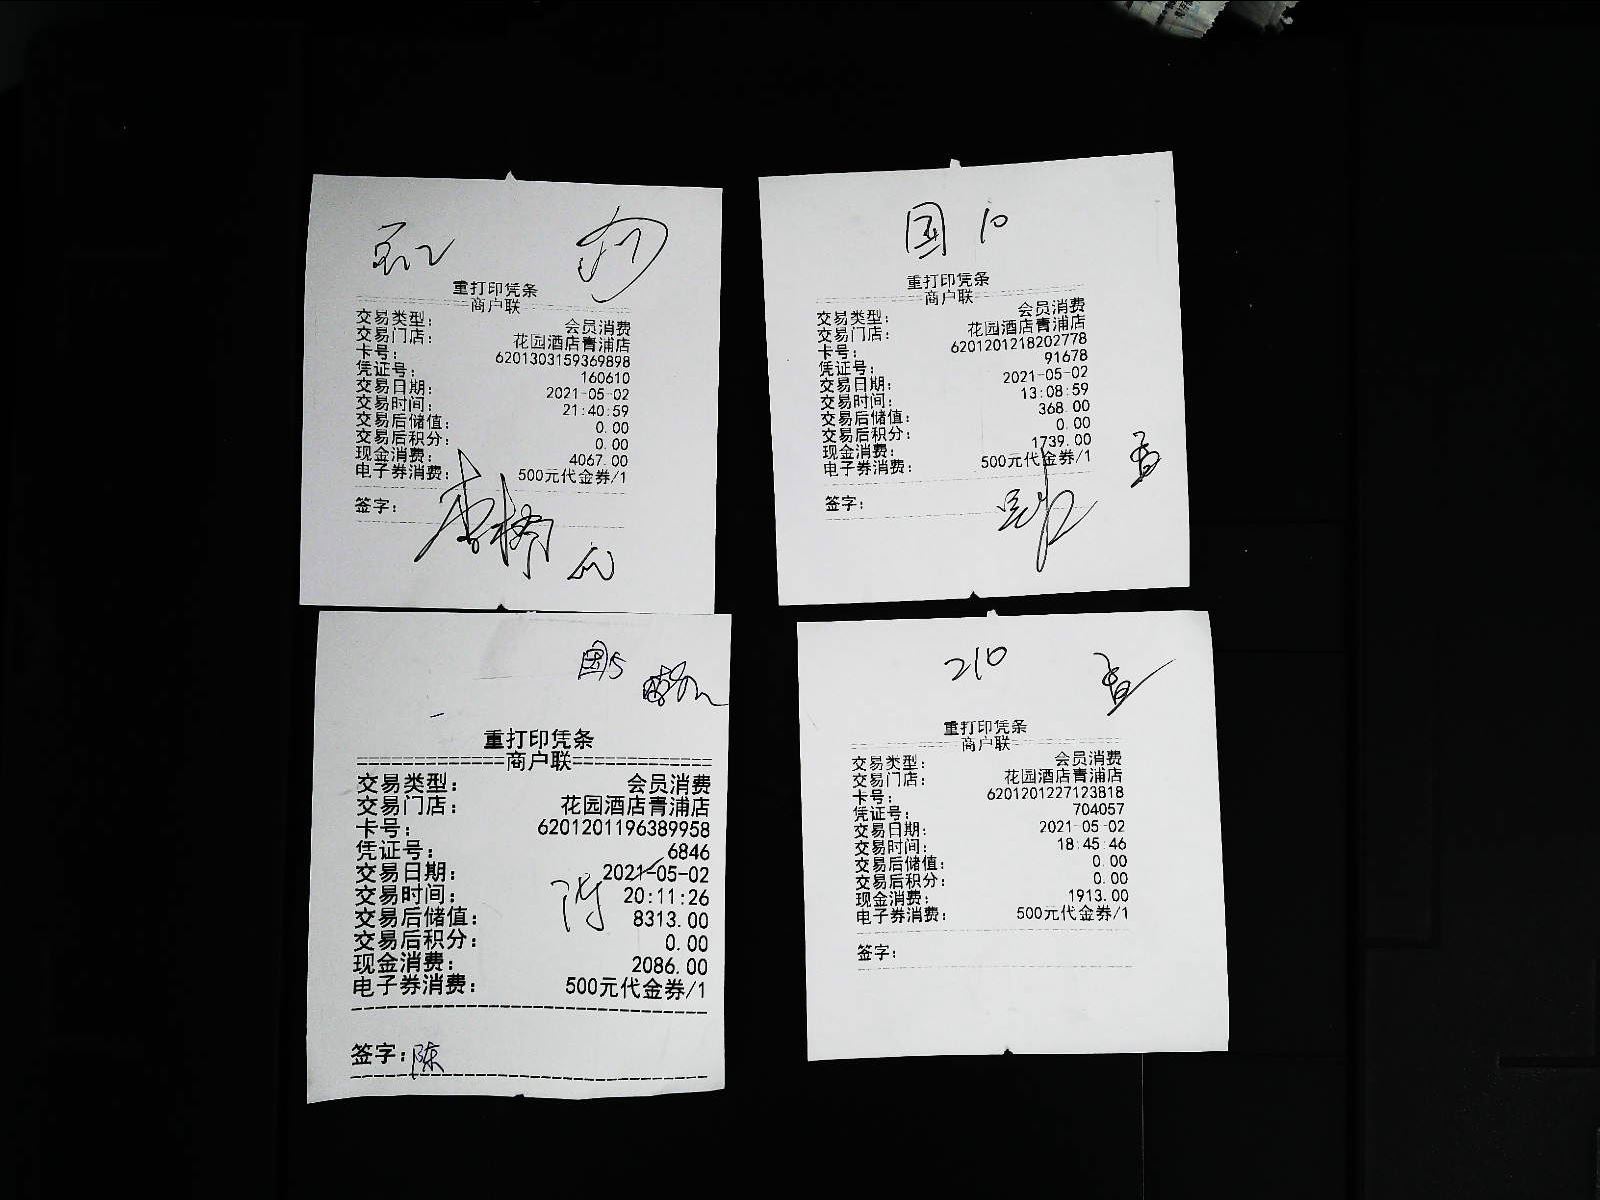 重打印凭条
商户联
交易类型： 会员消费
交易门店： 花园酒店青浦店
卡号： 6201303159369898
凭证号： 160610
交易日期： 2021-05-02
交易时间： 21:40:59
交易后储值： 0.00
交易后积分： 0.00
现金消费： 4067.00
电子券消费： 500元代金券/1
签字：
国 10
重打印凭条
商户联
交易类型： 会员消费
交易门店： 花园酒店青浦店
卡号： 6201201218202778
凭证号： 91678
交易日期： 2021-05-02
交易时间： 13:08:59
交易后储值： 368.00
交易后积分： 0.00
现金消费： 1739.00
电子券消费： 500元代金券/1
签字：
重打印凭条
============商户联============
交易类型： 会员消费
交易门店： 花园酒店青浦店
卡号： 6201201196389958
凭证号： 6846
交易日期： 2021-05-02
交易时间： 20:11:26
交易后储值： 8313.00
交易后积分： 0.00
现金消费： 2086.00
电子券消费： 500元代金券/1
签字：陈
210
重打印凭条
商户联
交易类型： 会员消费
交易门店： 花园酒店青浦店
卡号： 6201201227123818
凭证号： 704057
交易日期： 2021-05-02
交易时间： 18:45:46
交易后储值： 0.00
交易后积分： 0.00
现金消费： 1913.00
电子券消费： 500元代金券/1
签字：